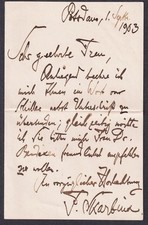 Potsdam, 1. Sept.
1903
Sehr geehrte Frau,
Anliegend beehre ich
mich Ihnen im Wort von
Schiller nebst Unterschrift zu
übersenden; gleichzeitig möchte
ich Sie bitten mich Ihrem Dr.
freundlichst empfehlen
zu wollen.
In vorzüglicher Hochachtung
F. Skarbina